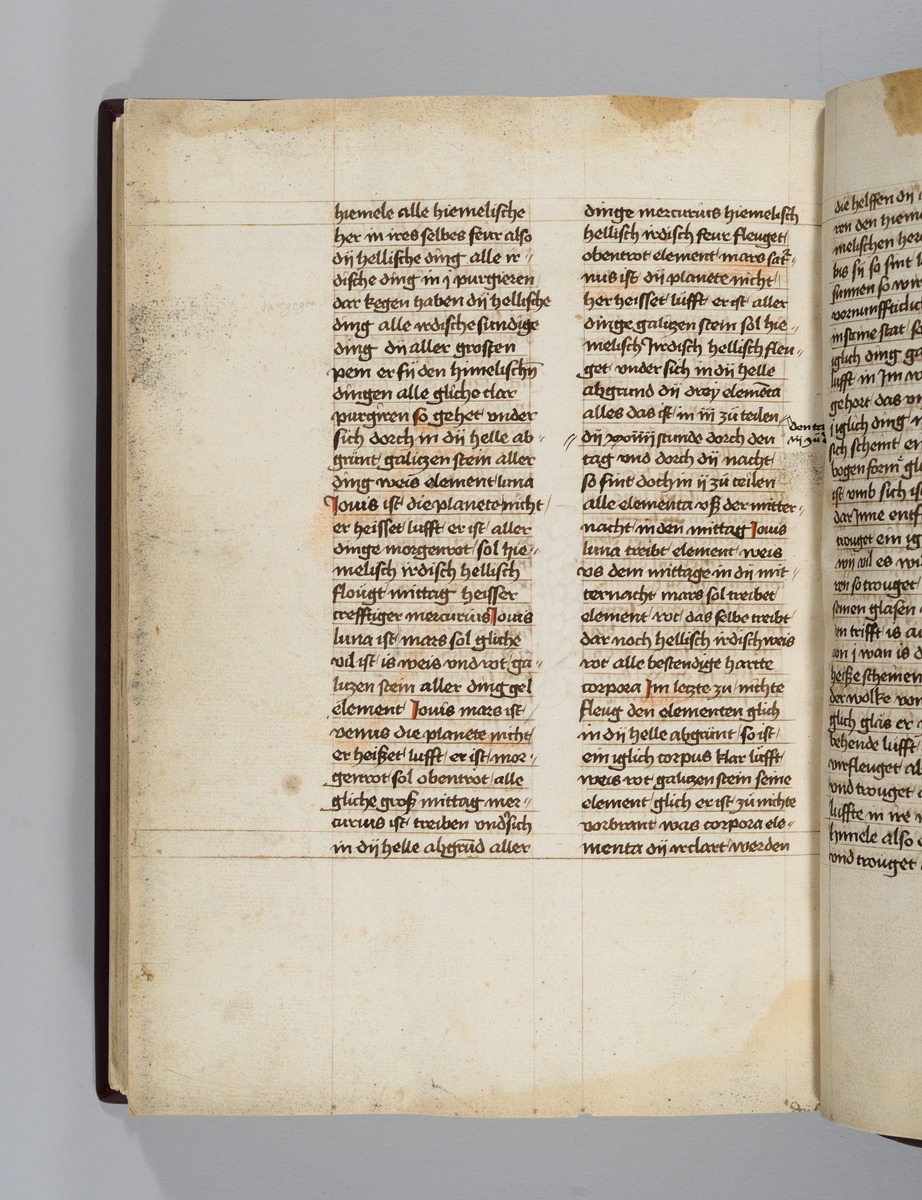 hiemele alle hiemelische
her in ires selbes feur also
dÿ hellische ding alle ir=
dische ding in j purgieren
dar kegen haben dÿ hellische
ding alle irdische sundige
ding dÿ aller grosten
pein er fÿ den himelischn̄
dingen alle gliche clar
purgiren so gehet vnder
sich dorch in dÿ helle ab=
grunt/ galitzen stein aller
ding weis element luna
Jouis ist/ die planete nicht/
er heisset lufft/ er ist/ aller
dinge morgenrot/ sol hie=
melisch irdisch hellisch
flougt mittag heisser
crefftiger mercurius Jouis
luna ist/ mars sol gliche
vil ist/ is weis vnd rot/ ga=
litzen stein aller ding gel
element/ Jouis mars ist/
venus die planete nicht/
er heißet lufft/ er ist/ mor=
genrot/ sol obentrot/ alle
gliche groß mittag mer=
curius ist/ treiben vnd sich
in dÿ helle abgrūd aller
dinge mercurius hiemelisch
hellisch irdisch feur fleuget/
obentrot element/ mars sat=
nus ist/ dÿ planete nicht/
her heisset lufft er ist aller
dinge galitzen stein sol hie=
melisch Jrdisch hellisch fleu=
get vnder sich in dÿ helle
abgrund dÿ dreÿ elemēta
alles das ist/ in iii zů teilen
dÿ xxiiij stunde dorch den
tag vnd dorch dÿ nacht/
so sint doch in ij zů teilen
alle elementa vß der mitter=
nacht/ in den mittag Jouis
luna treibt element/ weis
vs dem mittage in dÿ mit=
ternacht mars sol treibet/
element/ rot/ das selbe treibt/
dar noch hellisch irdisch weis
rot alle bestendige hartte
corpora Jm letzte zu nichte
fleug den elementen glich
in dÿ helle abgrunt/ so ist/
ein iglich corpus klar lufft/
weis rot galitzen stein seine
element/ glich er ist/ zů nichte
vorbrant/ was corpora ele=
menta dÿ irclart/ werden
die helffen dÿ
ren den
melischen
bis sÿ so sint
sunnen so
vornunfftich
in seine stat/
iglich ding
lufft in Jm
gehort das
iglich ding
sich schemt
bogen form
ist/ vmb sich
dar Jnne
trouget ein
wÿ vil es
ren so trouget
seinen glasen
en trifft is
on j wan is
heiße schemen
der wolke
glich glas er
behende lufft
virfleuget
vnd trouget
luffte in
himele also
vnd trouget